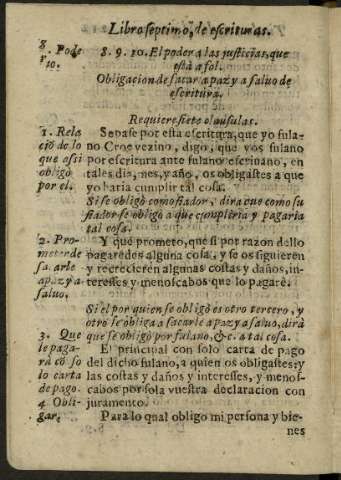 Libro septimo, de escrituras.
8. Pode
r, 10.
8. 9. 10. El poder a las justicias, que
está a fol.
Obligacion de sacar a paz y a saluo de
escritura.
Requiere siete clausulas.
1. Rela
ció de lo
que assi
obligò
por el.
Sepase por esta escritura, que yo fula-
no Croe vezino, digo, que vos fulano
por escritura ante fulano escriuano, en
tales dia, mes, y año, os obligastes a que
yo haria cumplir tal cosa.
Si se obligò como fiador, dira que como su
fiador se obligò a que cumpliria y pagaria
tal cosa.
2. Pro-
meter de
sacarle
a paz y a
saluo.
Y que prometo, que si por razon dello
pagaredes alguna cosa, y se os siguieren
y recrecieren algunas costas y daños, in-
teresses y menoscabos que lo pagarè.
Si el por quien se obligò es otro tercero, y
otro se obliga a sacarle a paz y a saluo, dirà
que se obligò por fulano, &c. a tal cosa.
3. Que
le paga-
rá có so
lo carta
de pago.
El principal con solo carta de pago
del dicho fulano, a quien os obligastes: y
las costas y daños y interesses, y menos-
cabos por sola vuestra declaracion con
juramento.
4 Obli-
gar,
Para lo qual obligo mi persona y bie-
nes